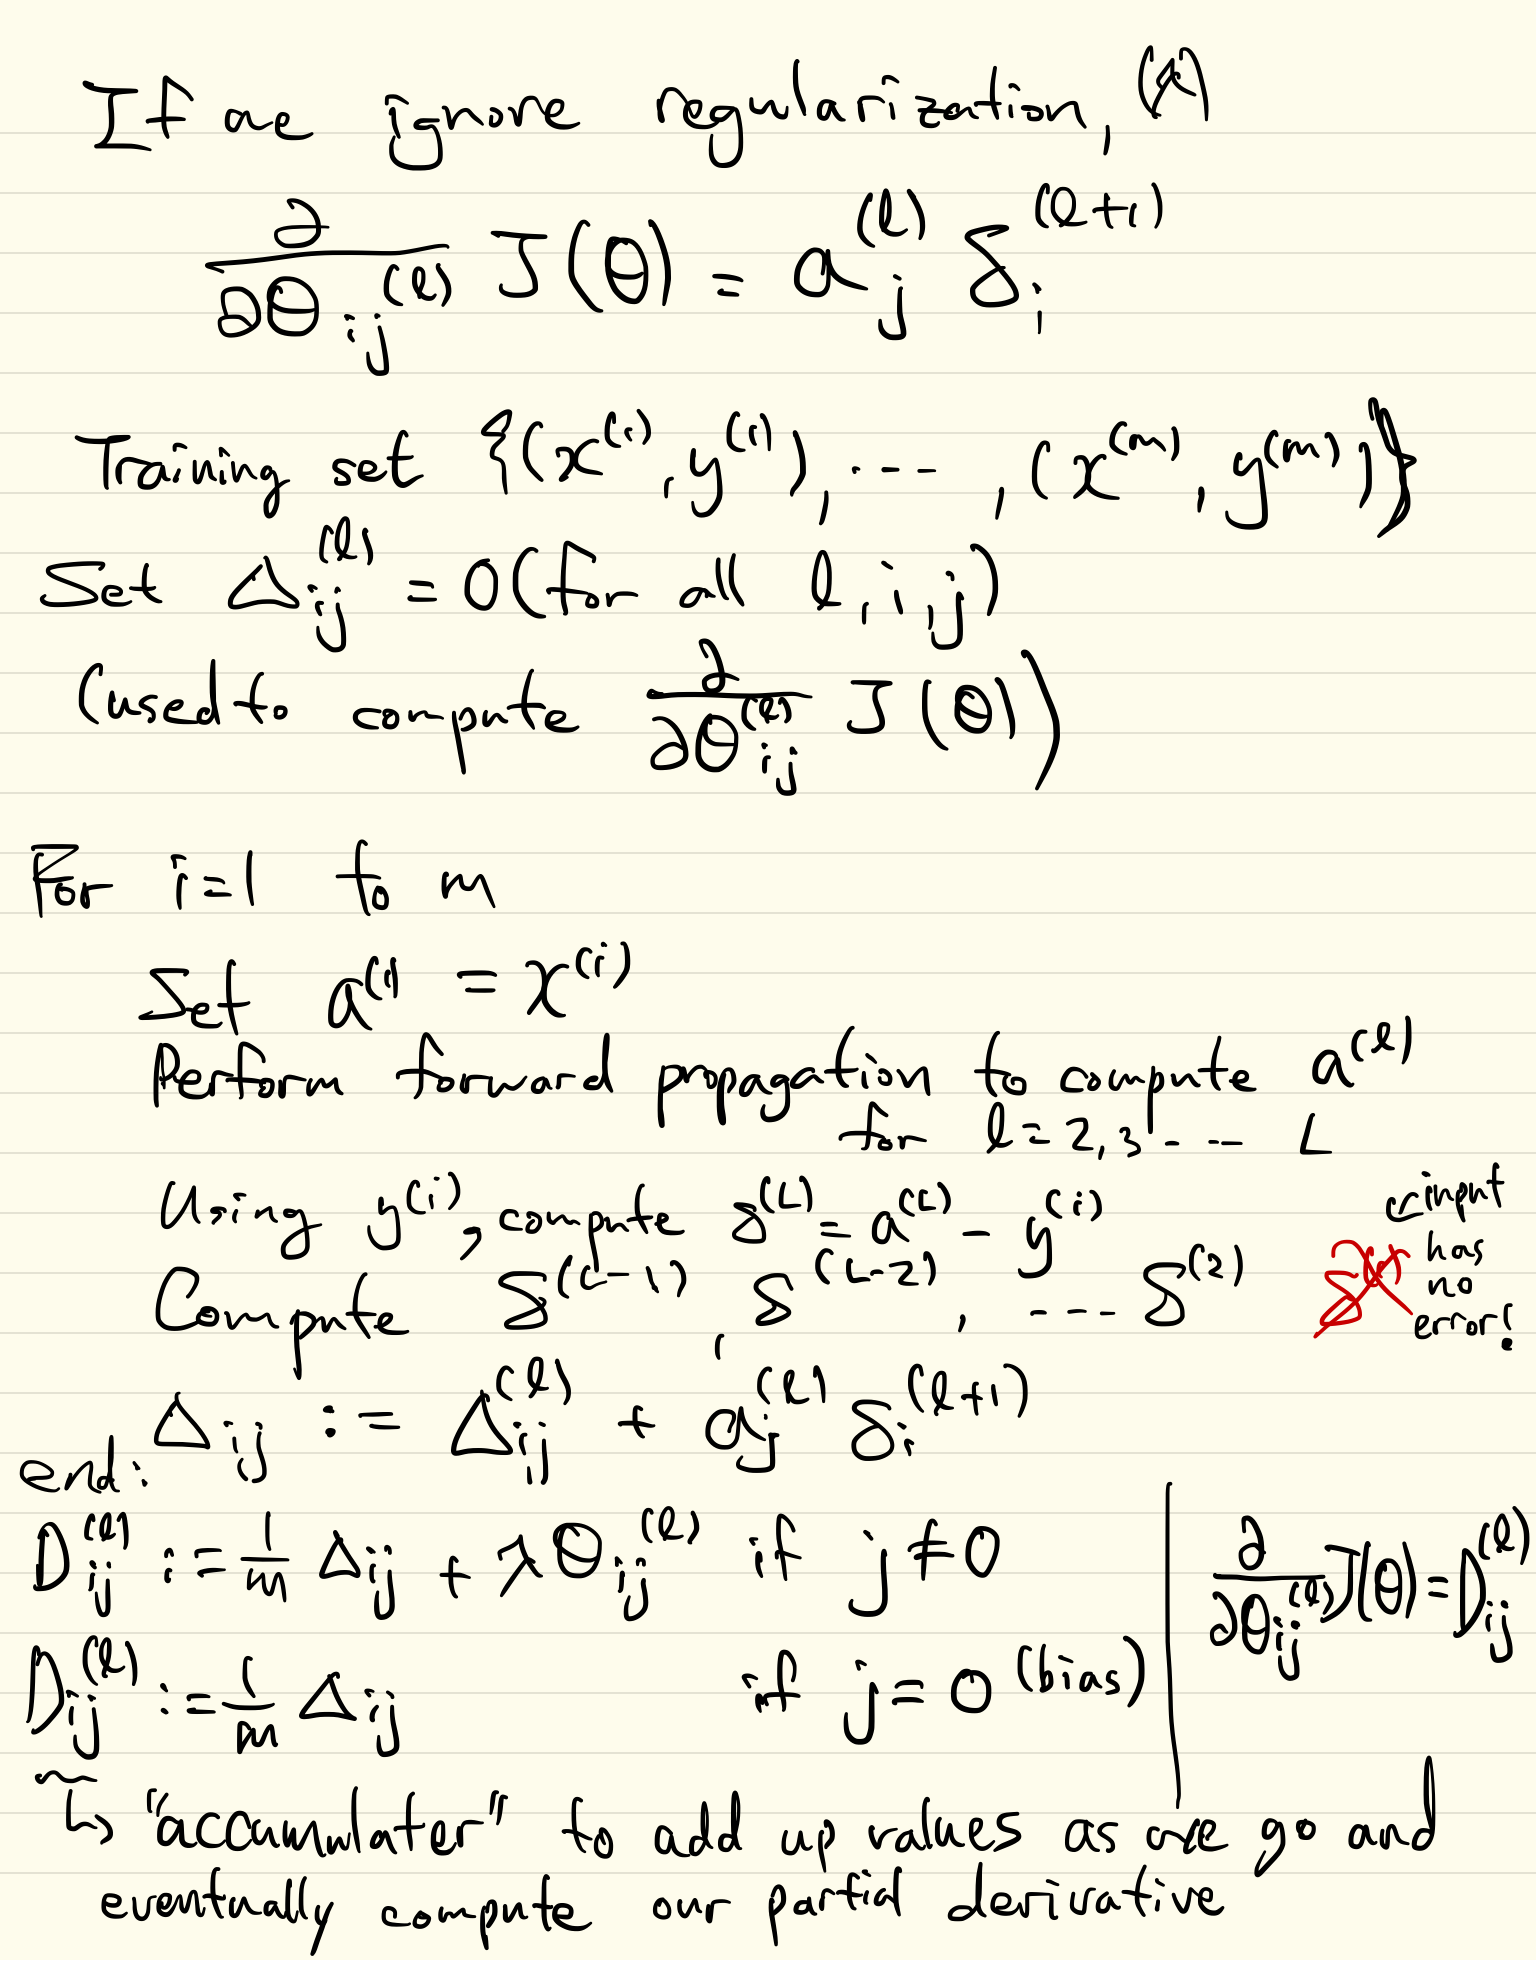 If we ignore regularization, (λ)
∂/∂Θ_ij^(l) J(Θ) = a_j^(l) δ_i^(l+1)
Training set {(x^(1), y^(1)), ---, (x^(m), y^(m))}
Set Δ_ij^(l) = 0 (for all l, i, j)
(used to compute ∂/∂Θ_ij^(l) J(Θ))
For i=1 to m
Set a^(1) = x^(i)
Perform forward propagation to compute a^(l)
for l=2,3 --- L
Using y^(i), compute δ^(L) = a^(L) - y^(i)
Compute δ^(L-1), δ^(L-2), --- δ^(2)
δ^(1)
input
has
no
error!
Δ_ij := Δ_ij^(l) + a_j^(l) δ_i^(l+1)
end:
D_ij^(l) := 1/m Δ_ij + λΘ_ij^(l) if j≠0
D_ij^(l) := 1/m Δ_ij if j=0 (bias)
∂/∂Θ_ij^(l) J(Θ) = D_ij^(l)
↳ "accumulater" to add up values as we go and
eventually compute our partial derivative